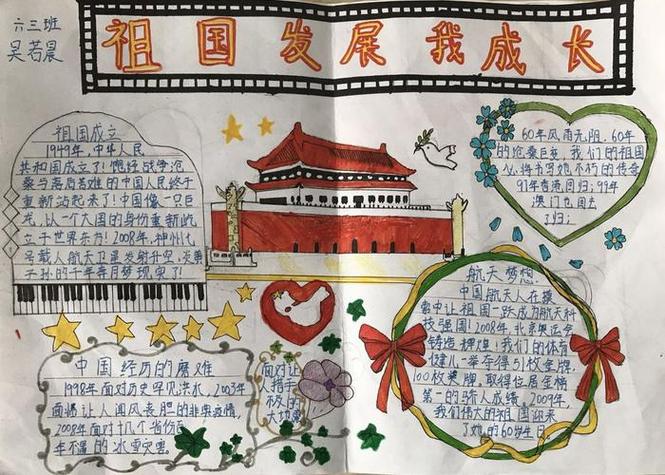 六三班
吴若晨
祖国发展我成长
祖国成立
1949年,中华人民
共和国成立了!饱经战争沧
桑与离启苦难的中国人民终于
重新站起来了!中国像一只巨
龙,以一个大国的身份重新屹
立于世界东方!2008年,神州七
号载人航天卫星发射升空,炎黄
子孙的千年奔月梦现实了
60年风雨无阻,60年
的沧桑巨变,我们的祖国
必将书写她不朽的传奇
97年香港回归;99年
澳门也回去
了归;
航天梦想
中国航天人在摸
索中让祖国一跃成为航天科
技强国!2008年,北京奥运会
铸造辉煌,我们的体育
健儿一举夺得51枚金牌,
100枚奖牌,取得位居金榜
第一的骄人成绩。2009年,
我们伟大的祖国迎来
了她的60岁生日
中国经历的磨难
1998年面对历史罕见洪水,2003年
面临让人闻风丧胆的非典疫情,
2008年面对十几个省份百
年不遇的冰雪灾害
面对让
人措手
不及的
大地震